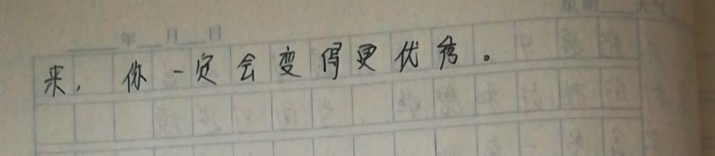 年 月 日
来，你一定会变得更优秀。